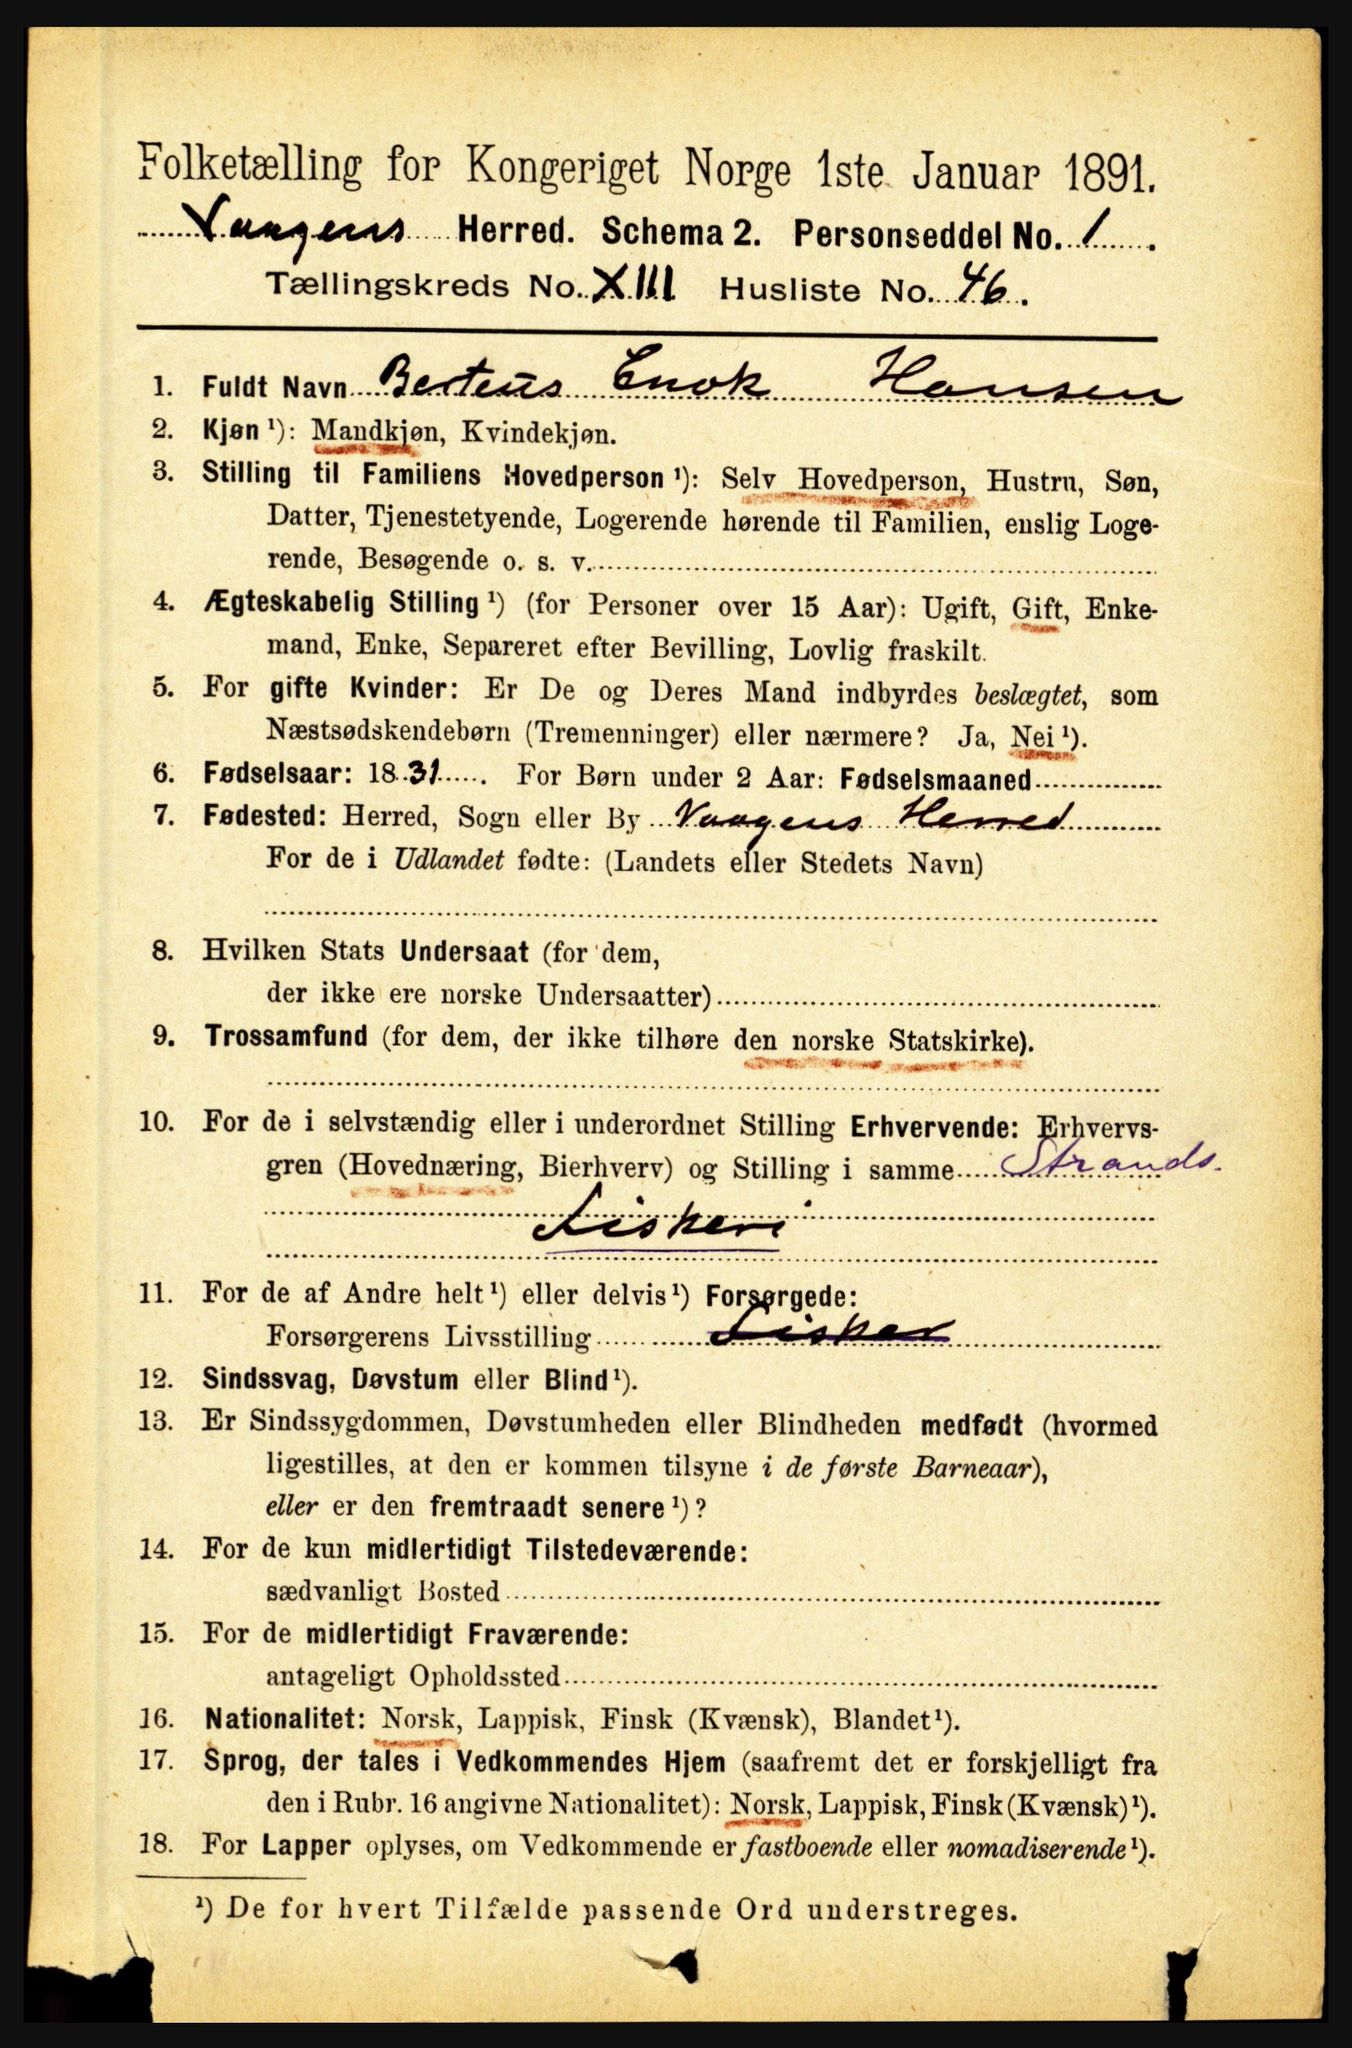 Folketælling for Kongeriget Norge 1ste Januar 1891.
Vaagens Herred. Schema 2. Personseddel No. 1.
Tællingskreds No. XIII Husliste No. 46.
1. Fuldt Navn Berteus Enok Hansen
2. Kjøn ¹): Mandkjøn, Kvindekjøn.
3. Stilling til Familiens Hovedperson ¹): Selv Hovedperson, Hustru, Søn,
Datter, Tjenestetyende, Logerende hørende til Familien, enslig Loge-
rende, Besøgende o. s. v.
4. Ægteskabelig Stilling ¹) (for Personer over 15 Aar): Ugift, Gift, Enke-
mand, Enke, Separeret efter Bevilling, Lovlig fraskilt.
5. For gifte Kvinder: Er De og Deres Mand indbyrdes beslægtet, som
Næstsødskendebørn (Tremenninger) eller nærmere? Ja, Nei ¹).
6. Fødselsaar: 1831. For Børn under 2 Aar: Fødselsmaaned
7. Fødested: Herred, Sogn eller By Vaagens Herred
For de i Udlandet fødte: (Landets eller Stedets Navn)
8. Hvilken Stats Undersaat (for dem,
der ikke ere norske Undersaatter)
9. Trossamfund (for dem, der ikke tilhøre den norske Statskirke).
10. For de i selvstændig eller i underordnet Stilling Erhvervende: Erhvervs-
gren (Hovednæring, Bierhverv) og Stilling i samme Strands.
Fiskeri
11. For de af Andre helt ¹) eller delvis ¹) Forsørgede:
Forsørgerens Livsstilling Fisker
12. Sindssvag, Døvstum eller Blind ¹).
13. Er Sindssygdommen, Døvstumheden eller Blindheden medfødt (hvormed
ligestilles, at den er kommen tilsyne i de første Barneaar),
eller er den fremtraadt senere ¹)?
14. For de kun midlertidigt Tilstedeværende:
sædvanligt Bosted
15. For de midlertidigt Fraværende:
antageligt Opholdssted
16. Nationalitet: Norsk, Lappisk, Finsk (Kvænsk), Blandet ¹).
17. Sprog, der tales i Vedkommendes Hjem (saafremt det er forskjelligt fra
den i Rubr. 16 angivne Nationalitet): Norsk, Lappisk, Finsk (Kvænsk) ¹).
18. For Lapper oplyses, om Vedkommende er fastboende eller nomadiserende ¹).
¹) De for hvert Tilfælde passende Ord understreges.